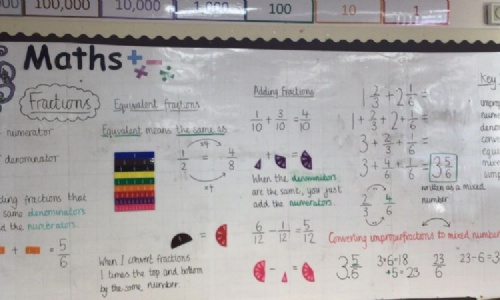 100,000
10,000
1,000
100
10
1
Maths
Fractions
numerator
denominator
ding fractions that
same denominators
d the numerators.
+ = 5/6
Equivalent fractions
Equivalent means the same as
×4
1/2 = 4/8
×4
=
When I convert fractions
I times the top and bottom
by the same number.
Adding Fractions
1/10 + 3/10 = 4/10
+ =
When the denominators
are the same, you just
add the numerators.
6/12 - 1/12 = 5/12
- =
1 2/3 + 2 1/6 =
1 + 2/3 + 2 + 1/6 =
3 + 2/3 + 1/6 =
3 + 4/6 + 1/6 = 3 5/6
2/3 4/6
written as a mixed
number
Converting improper fractions to mixed number
3 5/6
3×6=18
+5=23
23/6
23÷6=3
Key